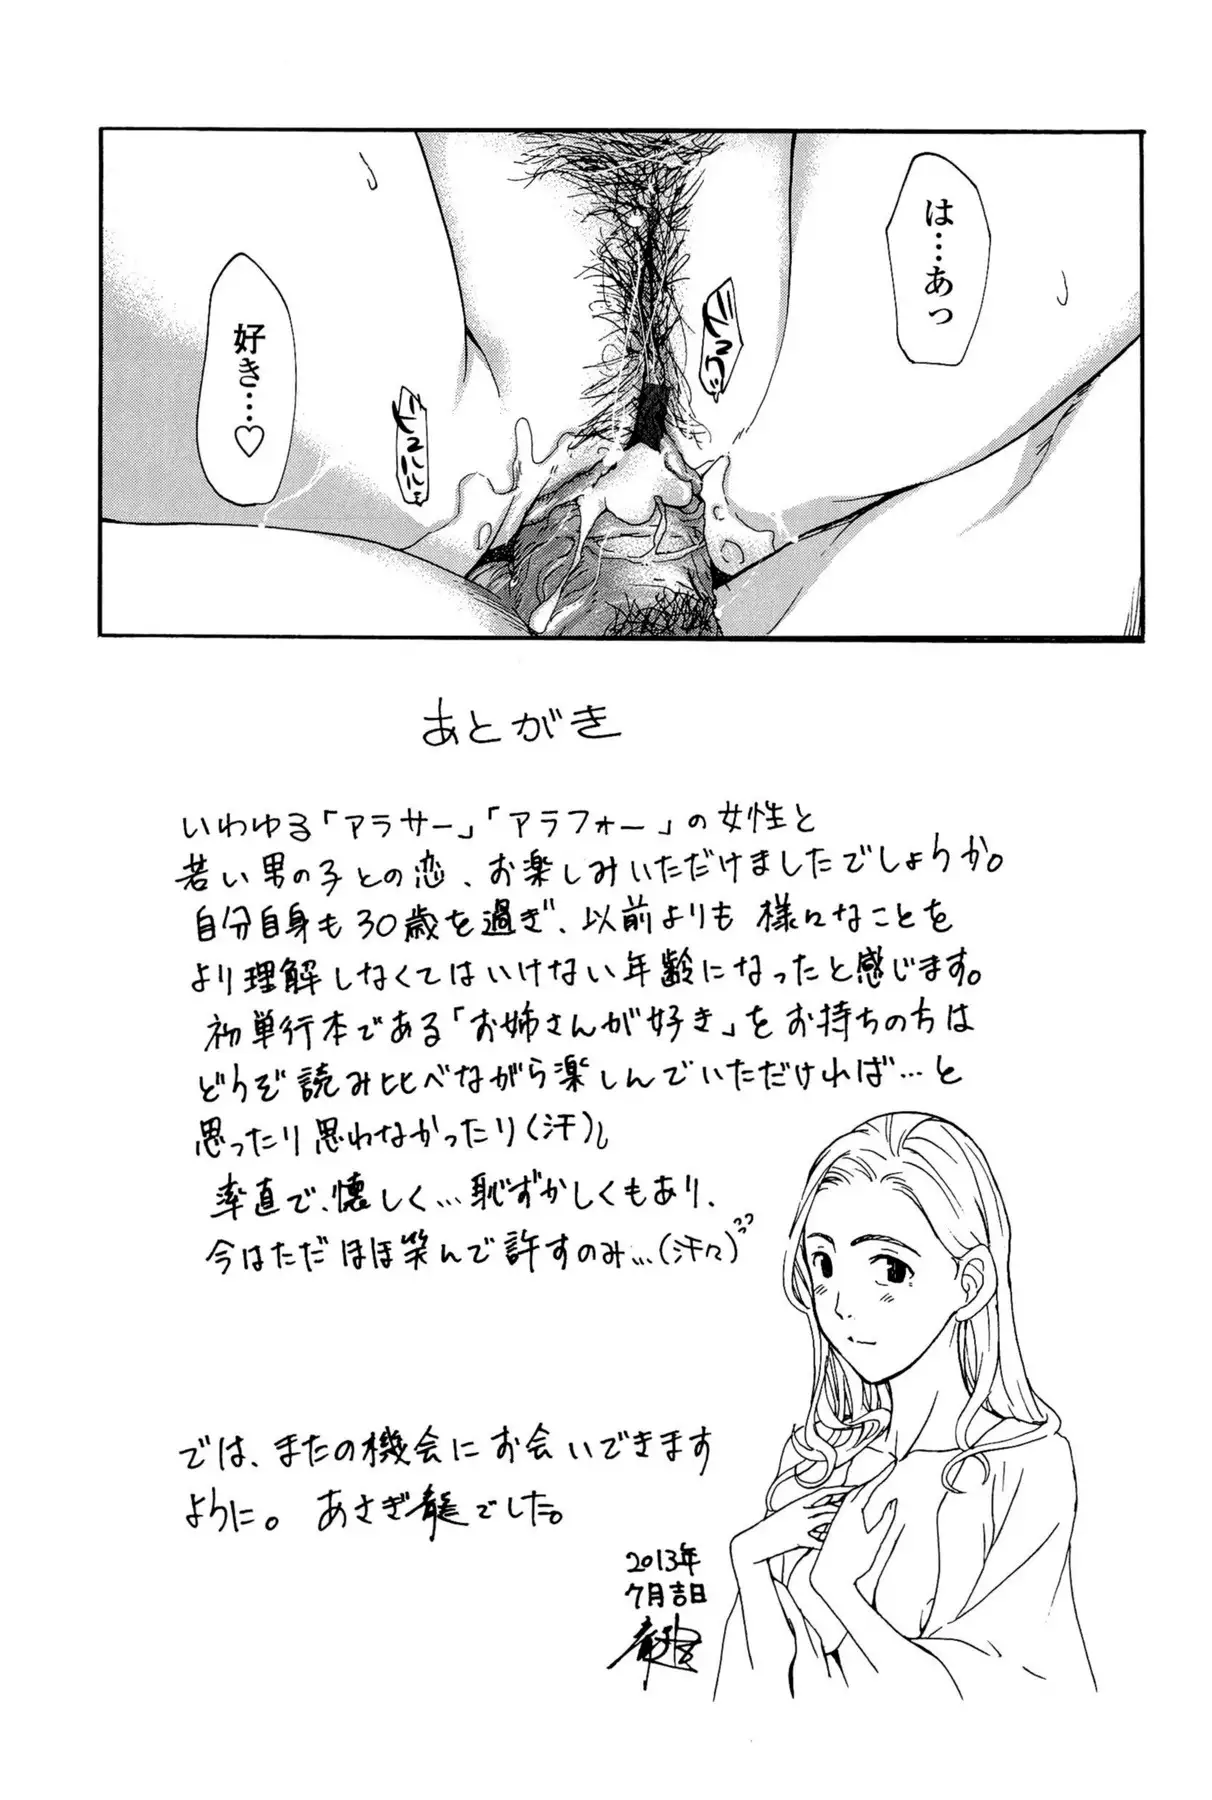 は…あっ
ドクッ
ドュルル
好き…♡
あとがき
いわゆる「アラサー」「アラフォー」の女性と
若い男の子との恋、お楽しみいただけましたでしょうか。
自分自身も30歳を過ぎ、以前よりも様々なことを
より理解しなくてはいけない年齢になったと感じます。
初単行本である「お姉さんが好き」をお持ちの方は
どうぞ読み比べながら楽しんでいただければ…と
思ったり思わなかったり(汗)。
率直で、懐しく…恥ずかしくもあり、
今はただほほ笑んで許すのみ…(汗々)
では、またの機会にお会いできます
ように。あさぎ龍でした。
2013年
7月吉日